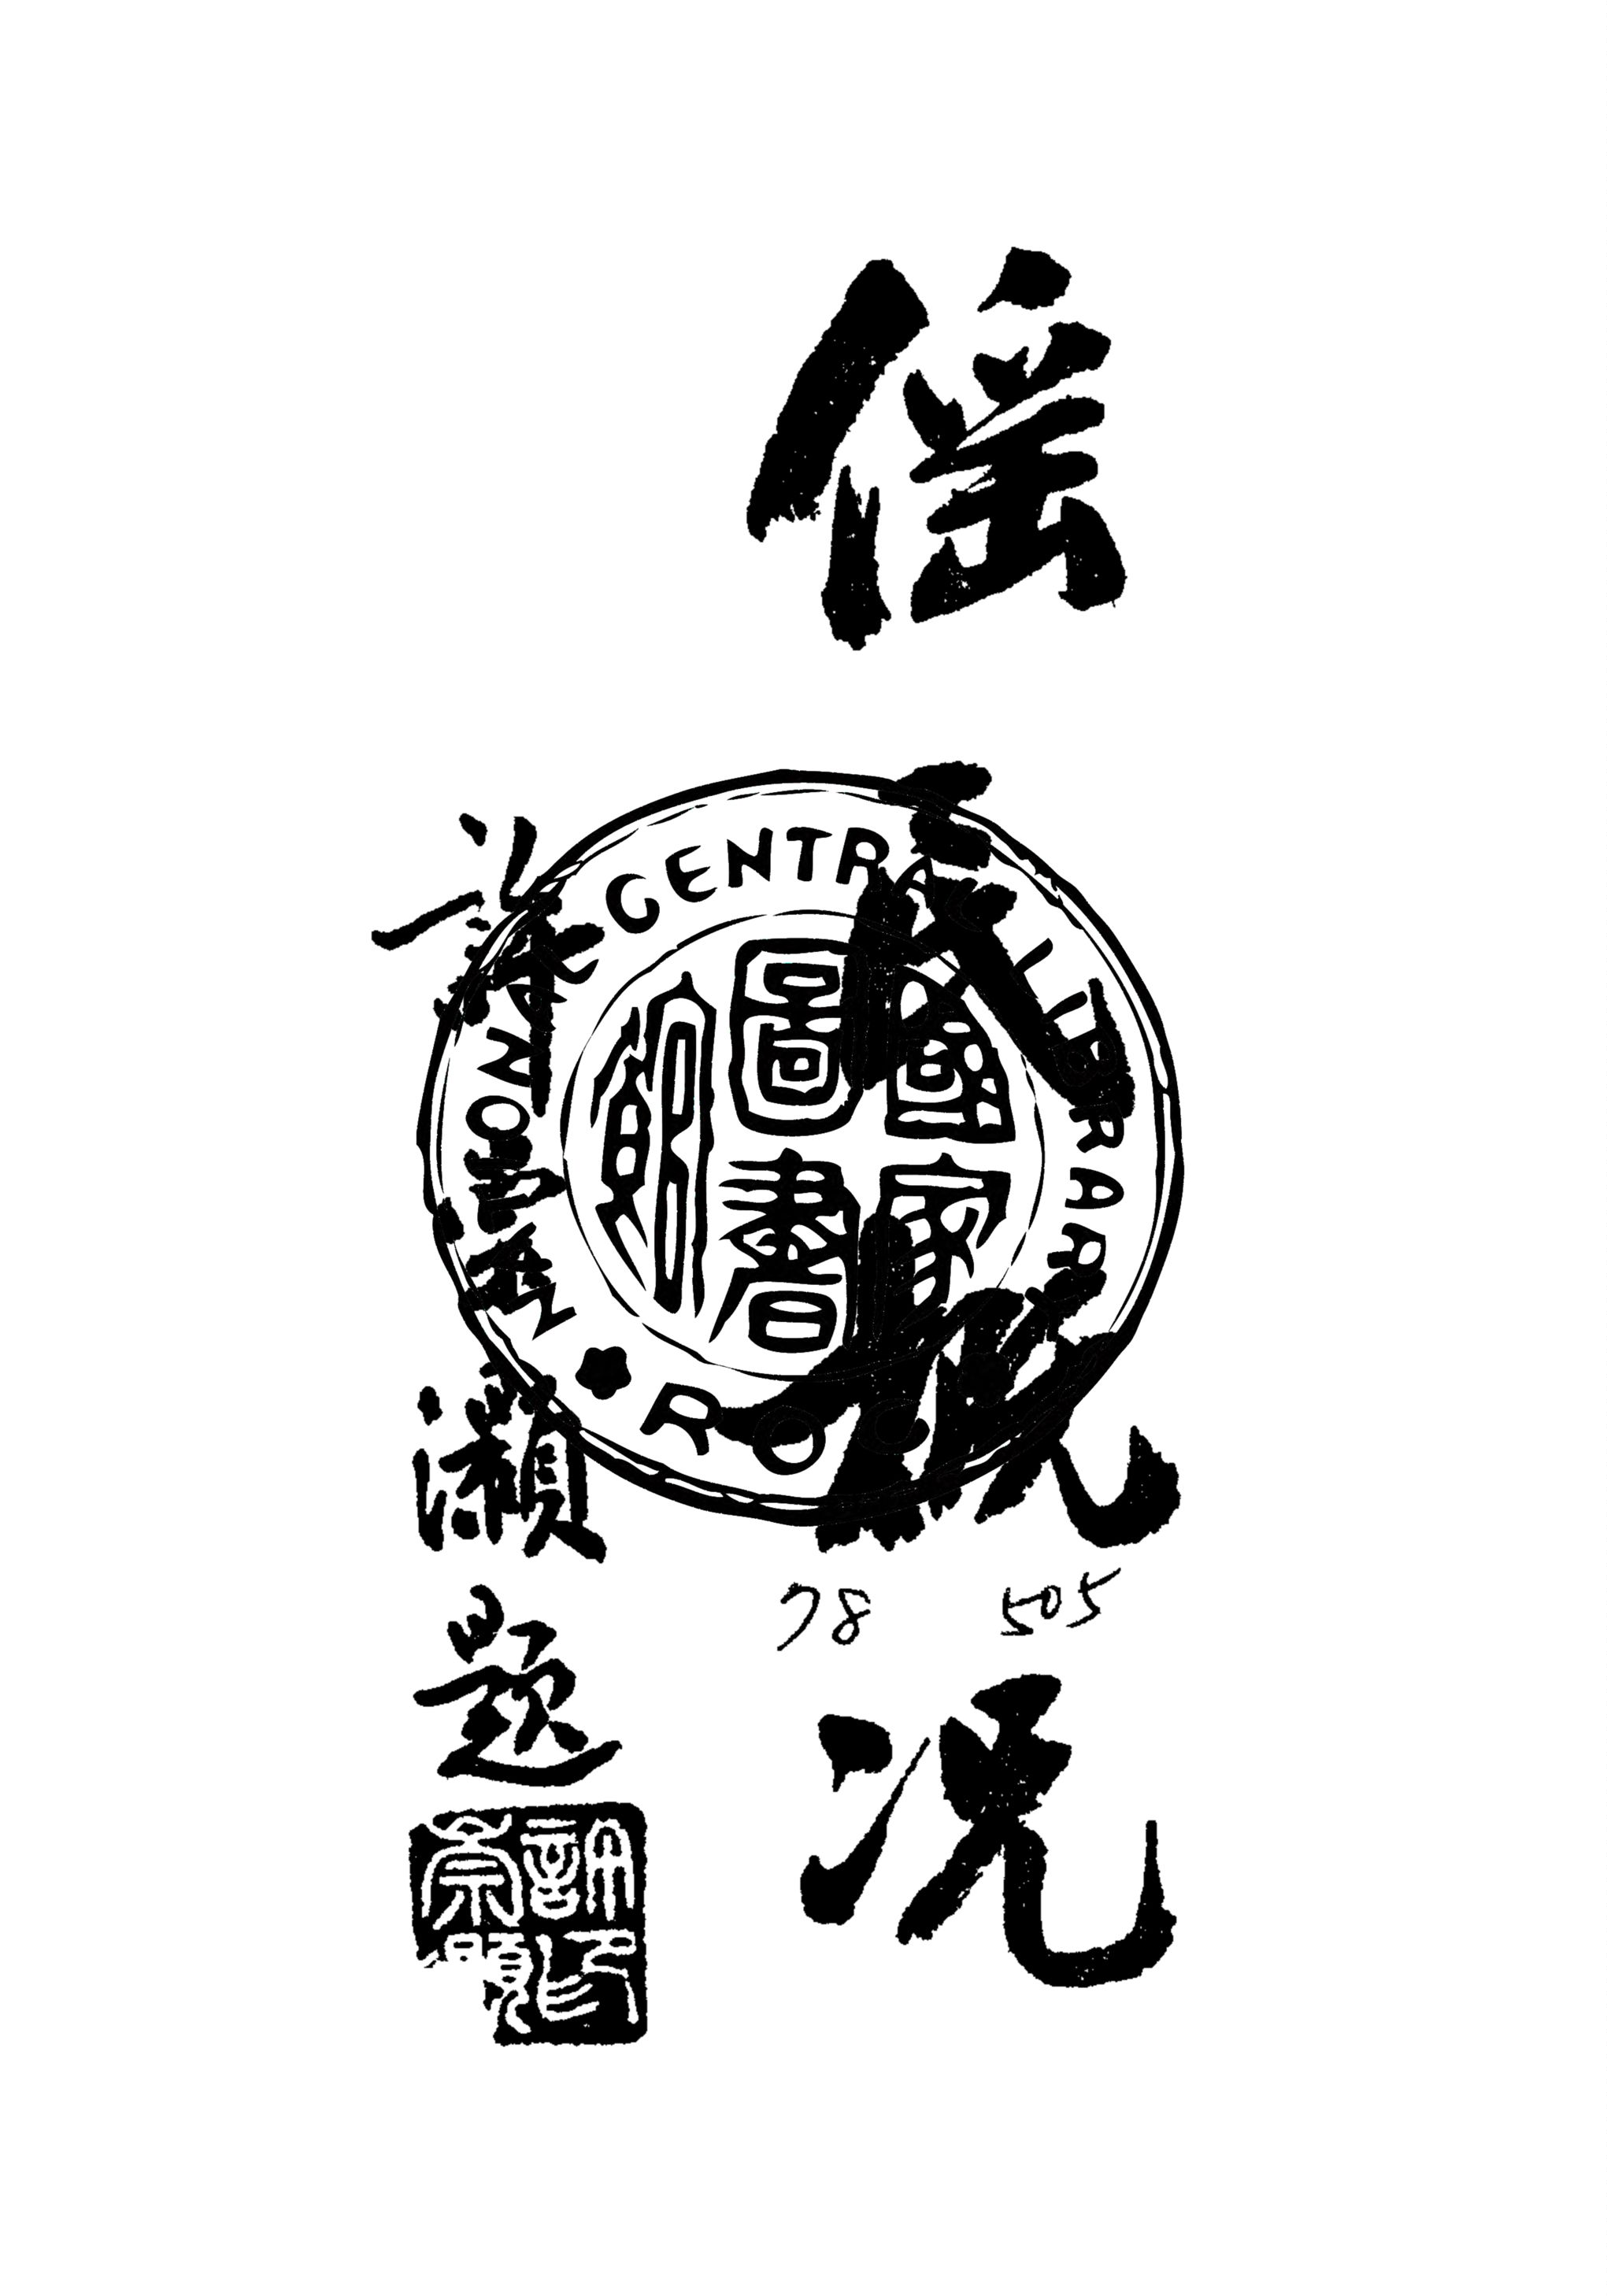 傜民概况
許崇灝題
國家圖書館
NATIONAL CENTRAL LIBRARY
ROC
78 505